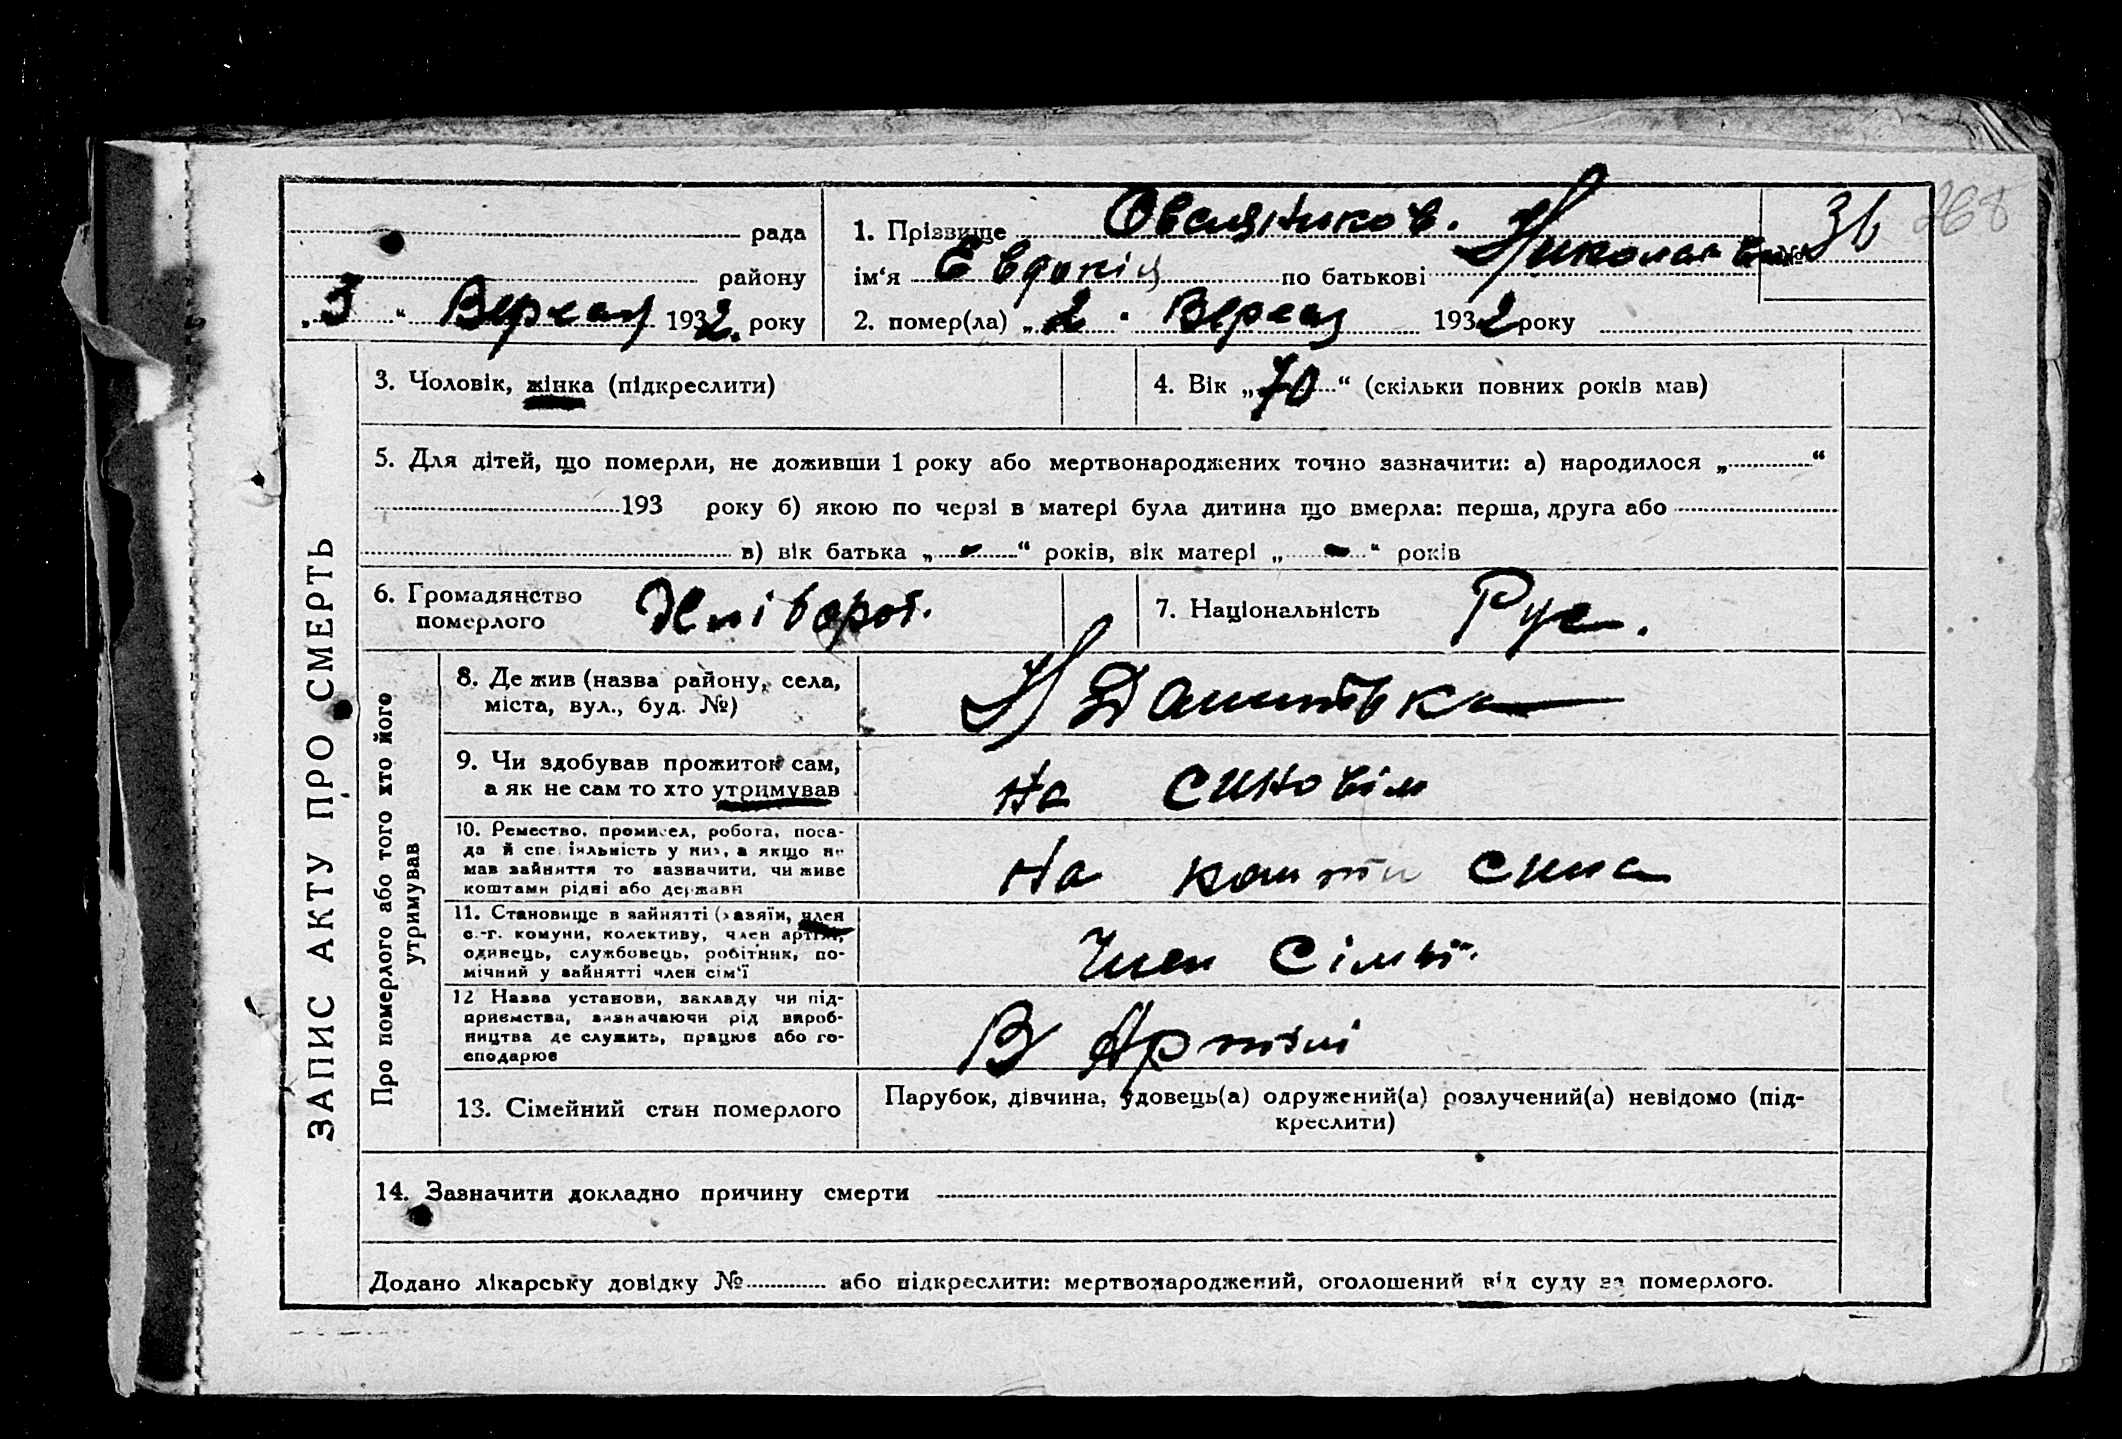 268
рада
району
„ 3 “ Вересня 1932. року
1. Прізвище Овсяников.
ім‘я Евдокія по батькові Николаевна № 36
2. помер(ла) „ 2 “ Вересня 1932 року
ЗАПИС АКТУ ПРО СМЕРТЬ
3. Чоловік, жінка (підкреслити)
4. Вік „70“ (скільки повних років мав)
5. Для дітей, що померли, не доживши 1 року або мертвонароджених точно зазначити: а) народилося „ “
193 року б) якою по черзі в матері була дитина що вмерла: перша, друга або
в) вік батька „ - “ років, вік матері „ - “ років
6. Громадянство
померлого
7. Національність Рус.
Про померлого або того хто його
утримував
8. Де жив (назва району, села,
міста, вул., буд. №)
9. Чи здобував прожиток сам,
а як не сам то хто утримував
На синовім
10. Ремество, промисел, робота, поса-
да й спеціяльність у них, а якщо не
мав зайняття то зазначити, чи живе
коштами рідні або держави
на кошти сина
11. Становище в зайнятті (хазяїн, член
с.-г. комуни, колективу, член артілі,
одинець, службовець, робітник, по-
мічний у зайнятті член сім‘ї
Член Сімьї.
12 Назва установи, закладу чи під-
приємства, визначаючи рід вироб-
ництва де служить, працює або го-
сподарює
В Артілі
13. Сімейний стан померлого
Парубок, дівчина, удовець(а) одружений(а) розлучений(а) невідомо (під-
креслити)
14. Зазначити докладно причину смерти
Додано лікарську довідку № або підкреслити: мертвонароджений, оголошений від суду за померлого.